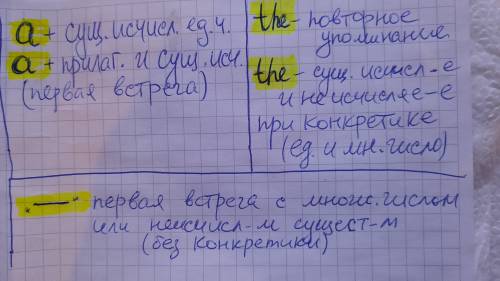 a + сущ. исчисл. ед. ч.
a + прилаг. и сущ. исч.
(первая встреча)
the - повторное
упоминание
the - сущ. исчисл-е
и неисчисляе-е
при конкретике
(ед. и мн. число)
— первая встреча с множ. числом
или неисчисл-м сущест-м
(без конкретики)